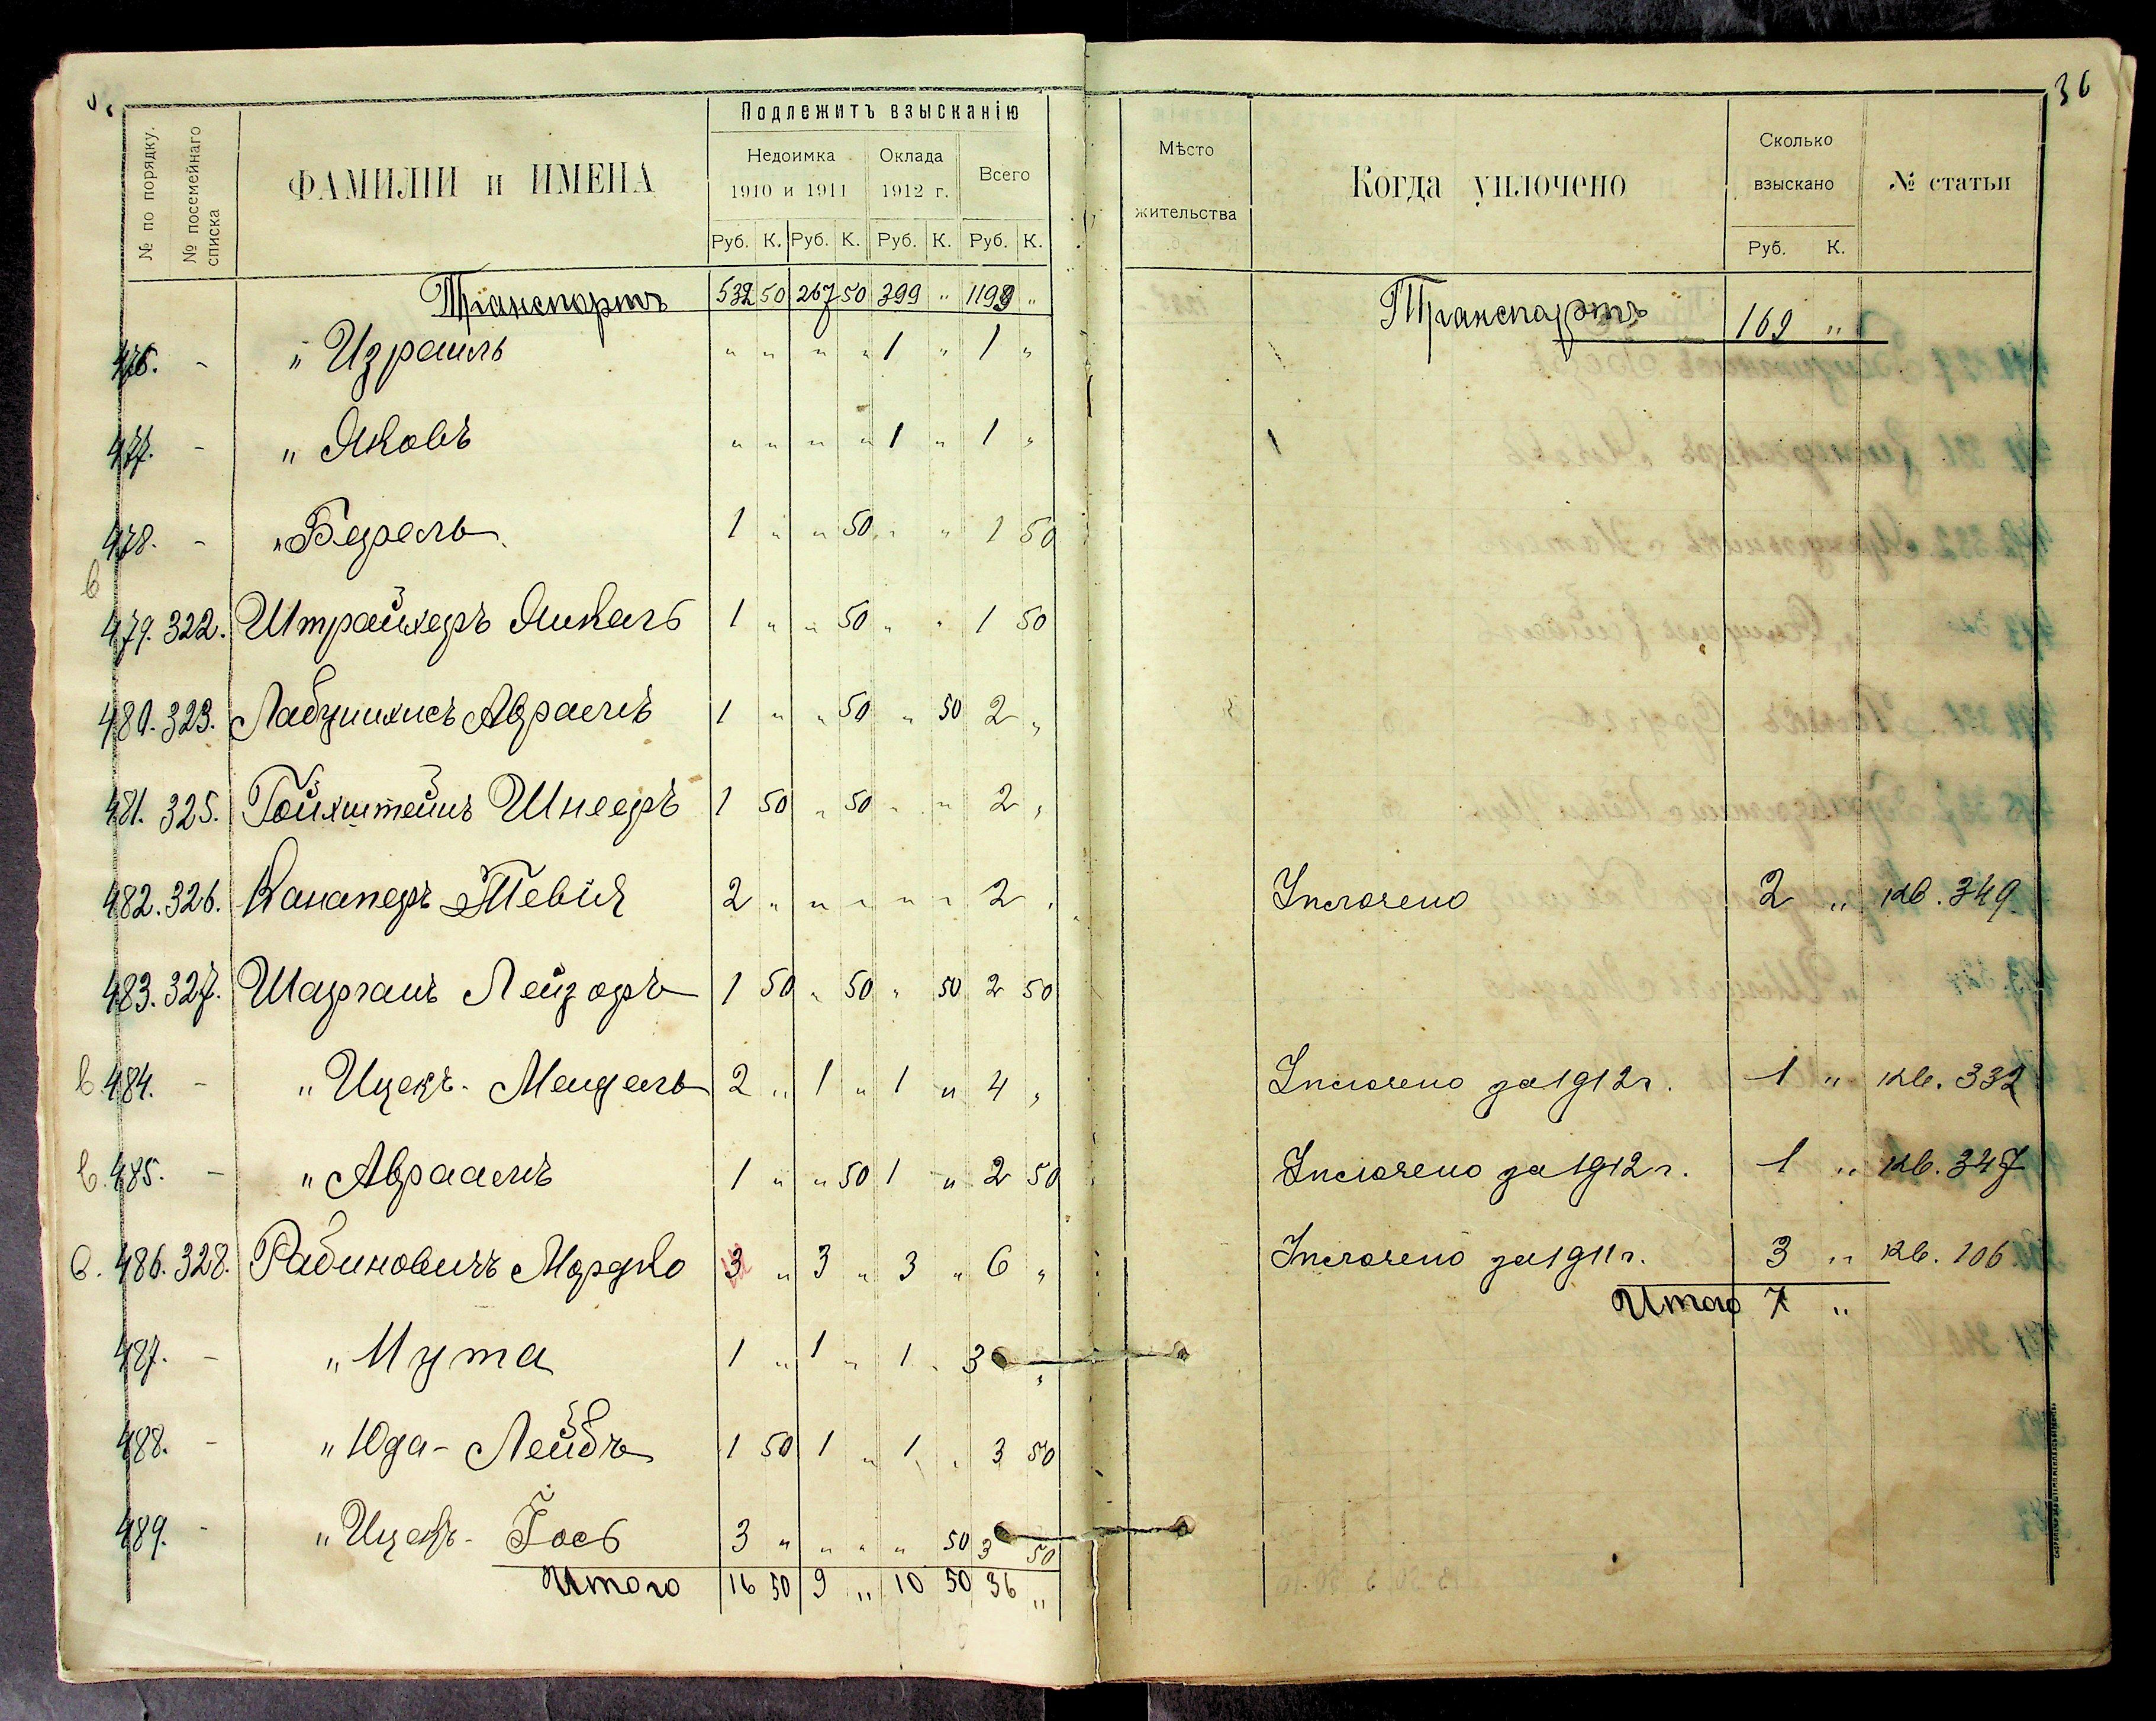 36
Подлежитъ взысканію
№ по порядку.
№ посемейнаго списка
ФАМИЛІИ и ИМЕНА
Недоимка 1910 и 1911
Оклада 1912 г.
Всего
Руб. К. Руб. К. Руб. К. Руб. К.
Мѣсто жительства
Когда уплочено
Сколько взыскано
Руб. К.
№ статьи
Транспортъ 532 50 267 50 399 " 1199 "
Транспортъ 169 "
476. - " Израиль " " " " 1 " 1 "
477. - " Яковъ " " " " 1 " 1 "
478. - " Берель 1 " " 50 " " 1 50
в
479. 322. Штрайхеръ Янкель 1 " " 50 " " 1 50
480. 323. Авраамъ 1 " " 50 " 50 2 "
481. 325. Гойхштейнъ Шнееръ 1 50 " 50 " " 2 "
482. 326. Канаперъ Тевія 2 " " " " " 2 " Уплочено 2 " кв. 349.
483. 327. Шарганъ Лейзоръ 1 50 " 50 " 50 2 50
в. 484. - " Ицекъ-Мендель 2 " 1 " 1 " 4 " Уплочено за 1912 г. 1 " кв. 332
в. 485. - " Авраамъ 1 " " 50 1 " 2 50 Уплочено за 1912 г. 1 " кв. 347
в. 486. 328. Рабиновичъ Мордко 3 " 3 " 3 " 6 " Уплочено за 1911 г. 3 " кв. 106
Итого 7 "
487. - " Мута 1 " 1 " 1 " 3 "
488. - " Юда-Лейбъ 1 50 1 " 1 " 3 50
489. - " Ицекъ-Гось 3 " " " " 50 3 50
Итого 16 50 9 " 10 50 36 "